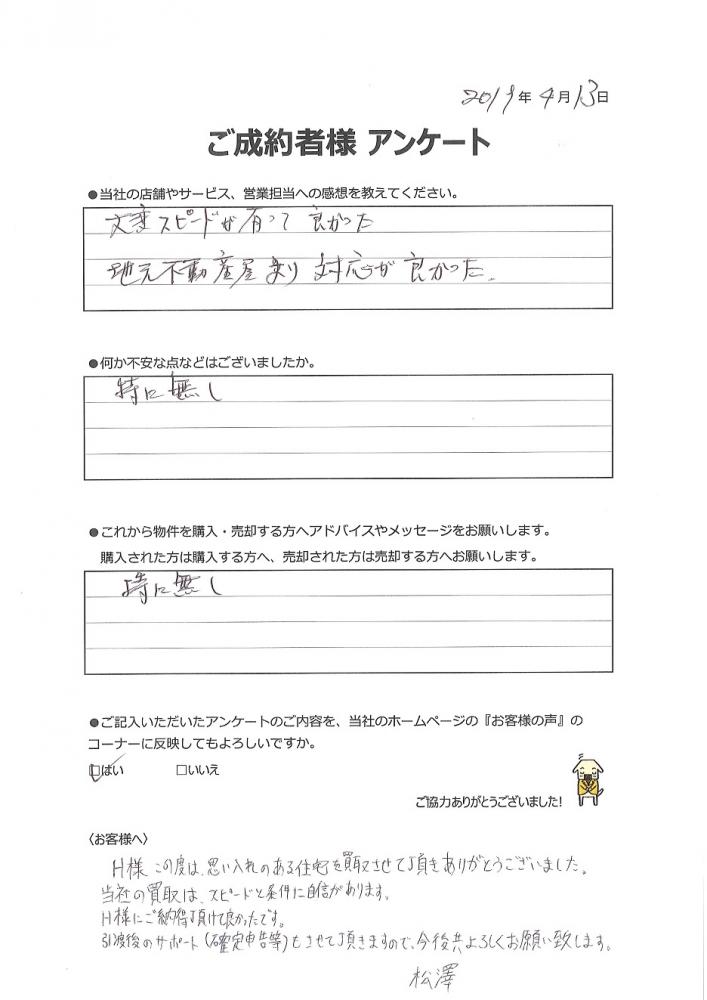 2019年4月13日
ご成約者様 アンケート
●当社の店舗やサービス、営業担当への感想を教えてください。
大変スピードが有って 良かった
地元不動産屋より 対応が 良かった。
●何か不安な点などはございましたか。
特に無し
●これから物件を購入・売却する方へアドバイスやメッセージをお願いします。
購入された方は購入する方へ、売却された方は売却する方へお願いします。
特に無し
●ご記入いただいたアンケートのご内容を、当社のホームページの『お客様の声』の
コーナーに反映してもよろしいですか。
☑はい □いいえ
ご協力ありがとうございました!
〈お客様へ〉
H様 この度は、思い入れのある住宅を買取させて頂きありがとうございました。
当社の買取は、スピードと条件に自信があります。
H様にご納得頂けて良かったです。
引渡後のサポート(確定申告等)もさせて頂きますので、今後共よろしくお願い致します。
松澤